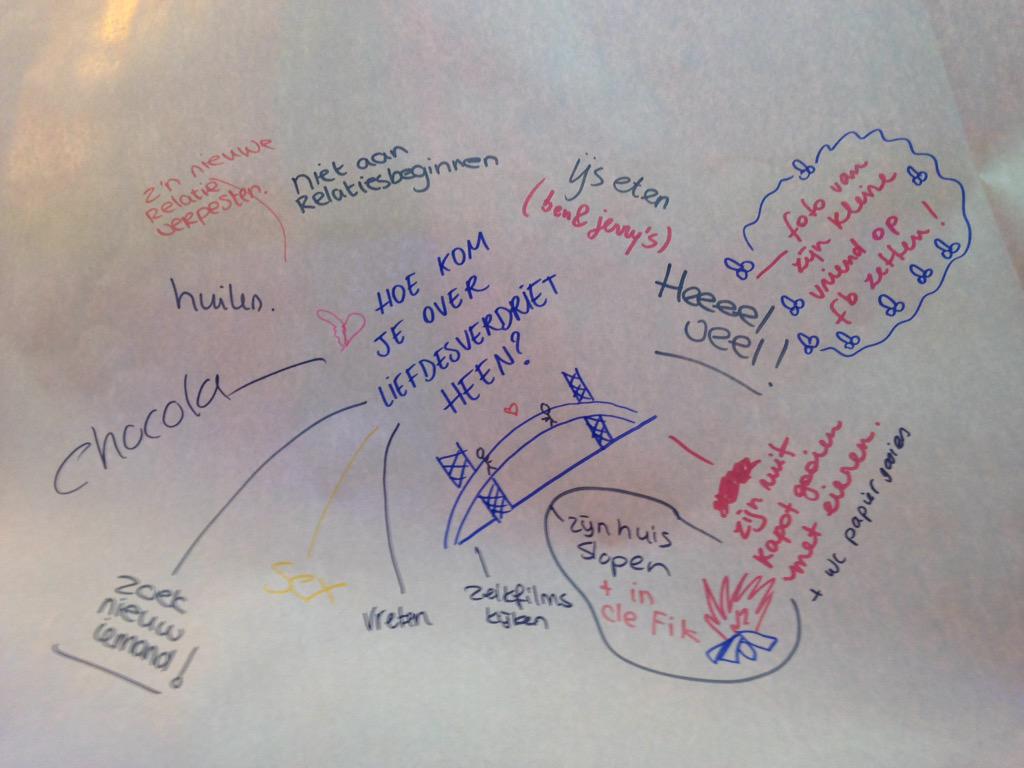 z'n nieuwe
relatie
verpesten.
niet aan
relatiesbeginnen
ijs eten
(ben & jerry's)
foto van
zijn kleine
vriend op
fb zetten!
Heeeel
veel!!
huilen.
HOE KOM
JE OVER
LIEFDESVERDRIET
HEEN?
chocola
zoek
nieuw
iemand!
sex
vreten
zwijmelfilms
kijken
zijn huis
slopen
+ in
de fik
zijn ruit
kapot gooien
met eieren.
+ wc papier gooien